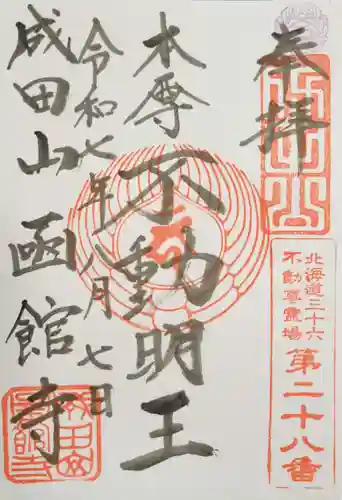 奉拝
北海道三十六
不動尊霊場
第二十八番
本尊
不動明王
令和七年八月七日
成田山函館寺